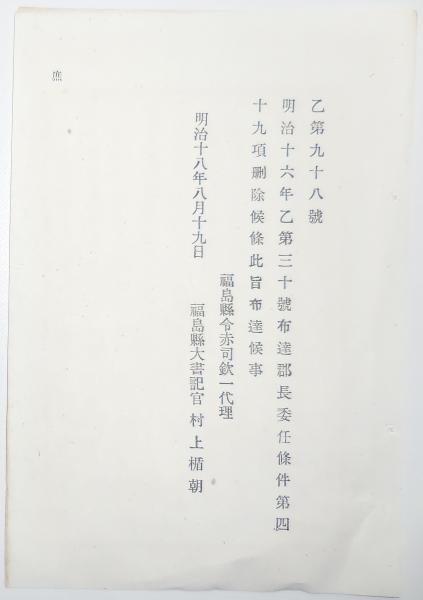 乙第九十八號
明治十六年乙第三十號布達郡長委任條件第四
十九項删除候條此旨布達候事
福島縣令赤司欽一代理
明治十八年八月十九日
福島縣大書記官村上楯朝
庶